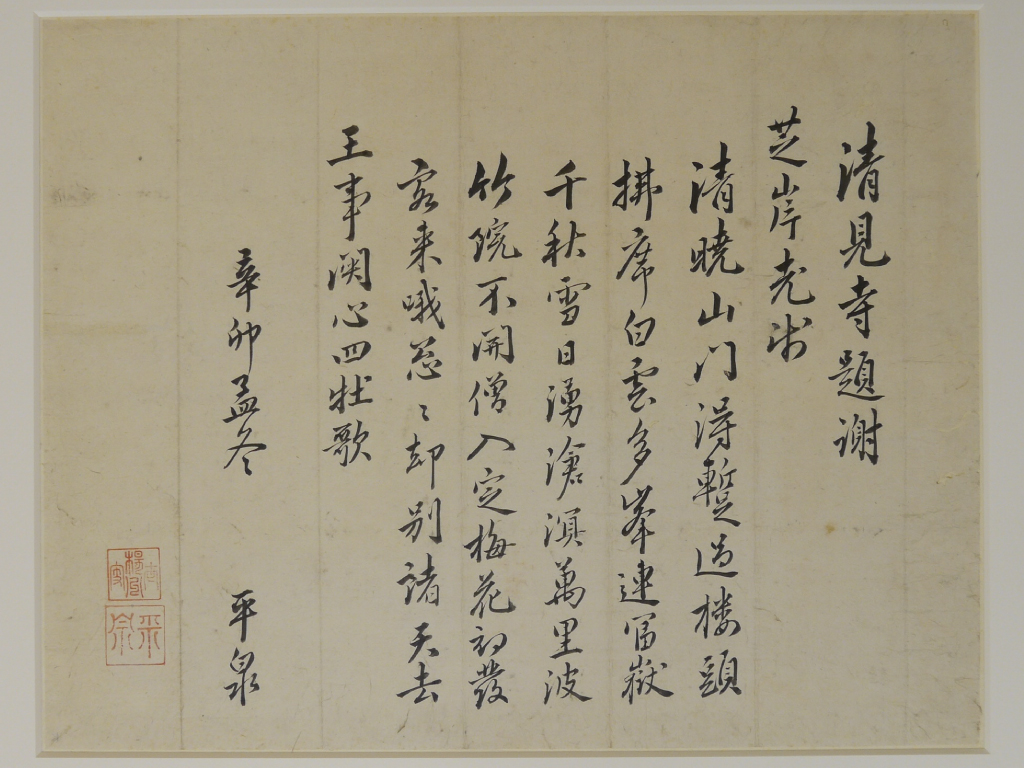 清見寺題謝
芝岸老师
清曉山门得暫過楼頭
拂席白雲多峯連冨嶽
千秋雪日湧滄溟萬里波
竹院不開僧入定梅花初發
客来哦怱々却別諸天去
王事関心四牡歌
辛卯孟冬 平泉